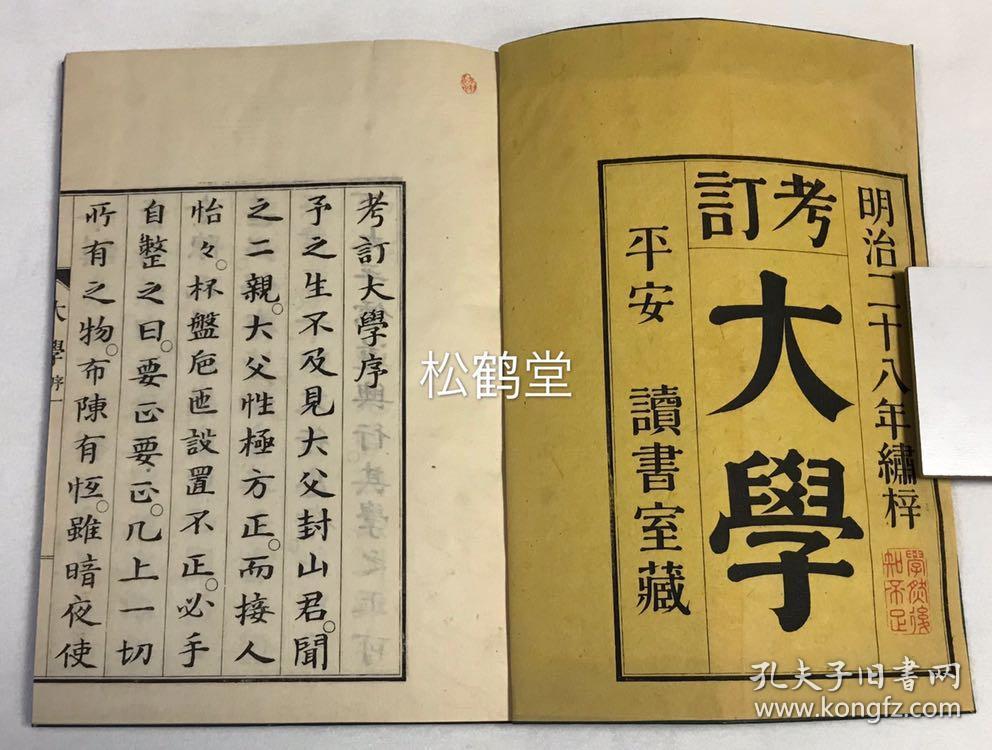 明治二十八年繡梓
考訂
大學
平安 讀書室藏
學然後
知不足
考訂大學序
予之生不及見大父封山君。聞
之二親。大父性極方正。而接人
怡々。杯盤巵匜設置不正。必手
自整之曰。要正要正。几上一切
所有之物。布陳有恆。雖暗夜使
大學 序 一
松鹤堂
孔夫子旧书网
www.kongfz.com